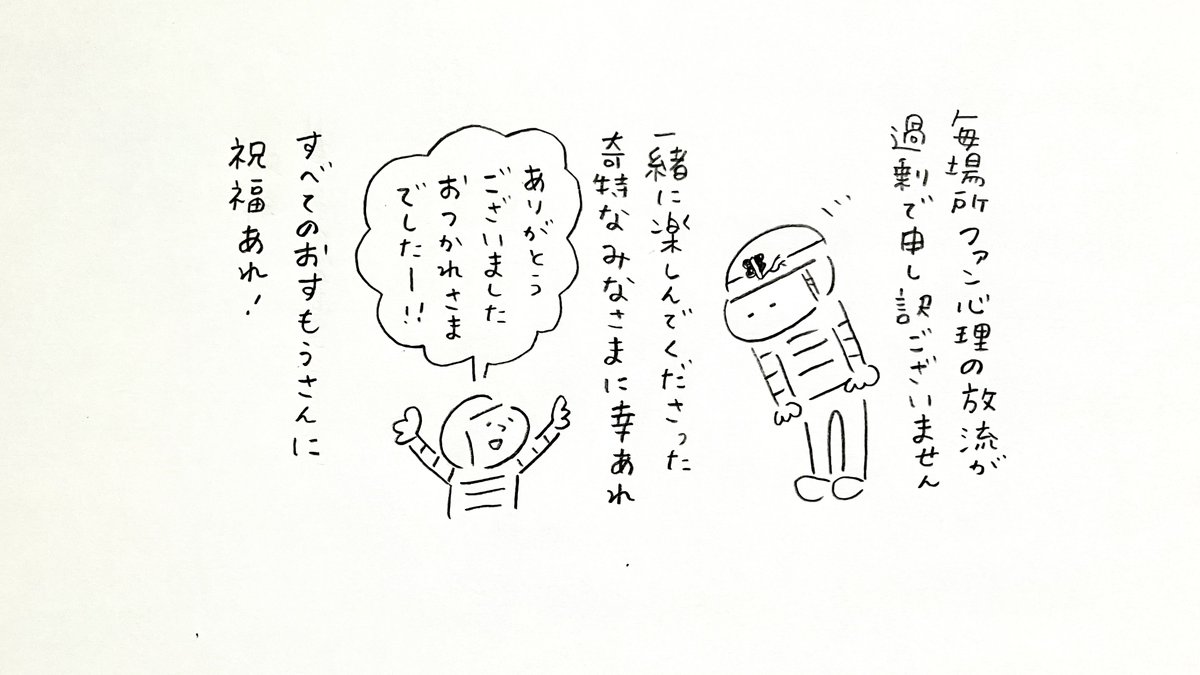 毎場所ファン心理の放流が
過剰で申し訳ございません
一緒に楽しんでくださった
奇特なみなさまに幸あれ
ありがとう
ございました
おつかれさま
でしたー!!
すべてのおすもうさんに
祝福あれ!